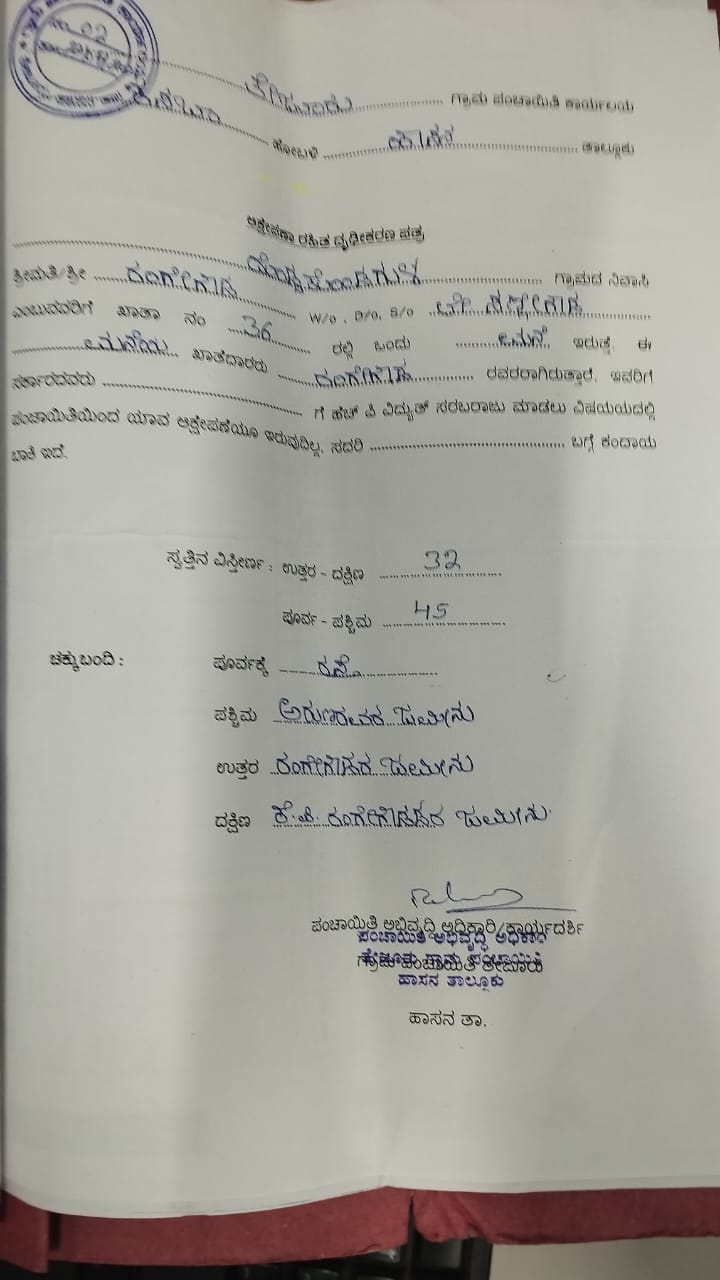 ತೇಜೂರು ಗ್ರಾಮ ಪಂಚಾಯಿತಿ ಕಾರ್ಯಾಲಯ
ಕಸಬಾ ಹೋಬಳಿ ಹಾಸನ ತಾಲ್ಲೂಕು
ಆಕ್ಷೇಪಣಾ ರಹಿತ ದೃಢೀಕರಣ ಪತ್ರ
ದೊಡ್ಡಹೊಂಡಗುಳ ಗ್ರಾಮದ ನಿವಾಸಿ
ಶ್ರೀಮತಿ/ಶ್ರೀ ರಂಗೇಗೌಡ W/o , D/o, S/o ಲೇ.
ಎಂಬುವವರಿಗೆ ಖಾತಾ ನಂ 36 ರಲ್ಲಿ ಒಂದು ಮನೆ ಇರುತ್ತೆ, ಈ
ಮನೆಯ ಖಾತೆದಾರರು ರಂಗೇಗೌಡ ರವರರಾಗಿರುತ್ತಾರೆ, ಇವರಿಗೆ
ಸರ್ಕಾರದವರು ಗೆ ಹೆಚ್ ಪಿ ವಿದ್ಯುತ್ ಸರಬರಾಜು ಮಾಡಲು ವಿಷಯಯದಲ್ಲಿ
ಪಂಚಾಯಿತಿಯಿಂದ ಯಾವ ಆಕ್ಷೇಪಣೆಯೂ ಇರುವುದಿಲ್ಲ, ಸದರಿ ಬಗ್ಗೆ ಕಂದಾಯ
ಬಾಕಿ ಇದೆ.
ಸ್ವತ್ತಿನ ವಿಸ್ತೀರ್ಣ : ಉತ್ತರ - ದಕ್ಷಿಣ 32
ಪೂರ್ವ - ಪಶ್ಚಿಮ 45
ಚಕ್ಕುಬಂದಿ : ಪೂರ್ವಕ್ಕೆ ರಸ್ತೆ
ಪಶ್ಚಿಮ ಅರುಣರವರ ಜಮೀನು
ಉತ್ತರ ರಂಗೇಗೌಡರ ಜಮೀನು
ದಕ್ಷಿಣ ರಂಗೇಗೌಡರ ಜಮೀನು
ಪಂಚಾಯಿತಿ ಅಭಿವೃದ್ಧಿ ಅಧಿಕಾರಿ/ಕಾರ್ಯದರ್ಶಿ
ಪಂಚಾಯಿತಿ ಅಭಿವೃದ್ಧಿ ಅಧಿಕಾರಿ
ಗ್ರಾಮ ಪಂಚಾಯಿತಿ ತೇಜೂರು
ಹಾಸನ ತಾಲ್ಲೂಕು
ಹಾಸನ ತಾ.